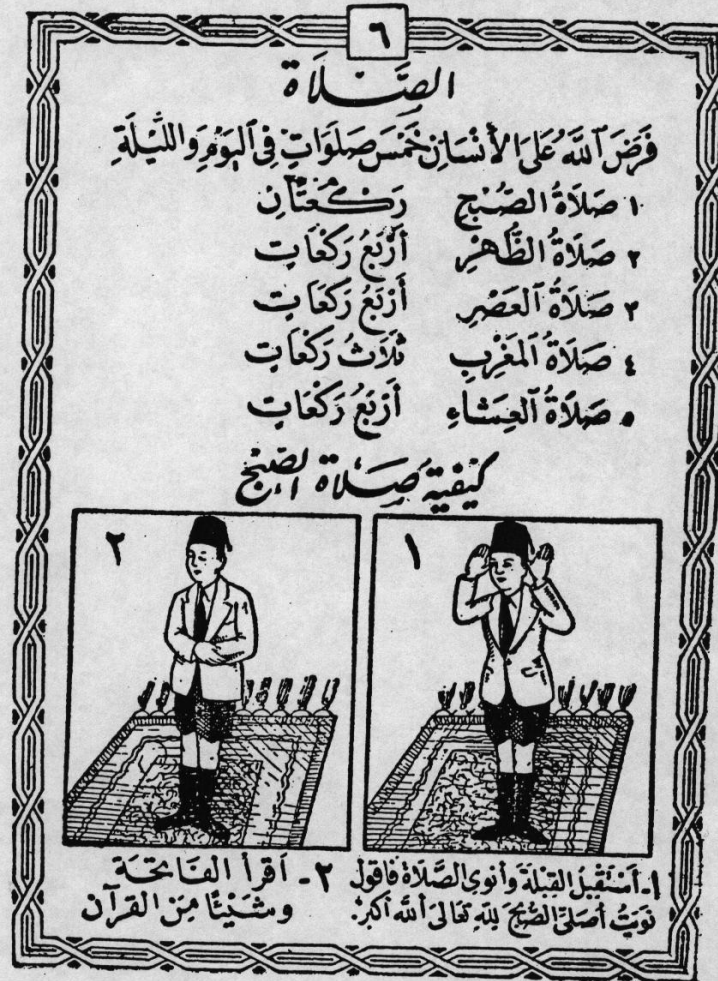 ٦
الصَّلَاة
فَرَضَ ٱللَّهُ عَلَى الأَنْسَانِ خَمْسَ صَلَوَاتٍ فِي ٱليَوْمِ وَاللَّيْلَةِ
١ صَلَاةُ الصُّبْحِ رَكْعَتَانِ
٢ صَلَاةُ الظُّهْرِ أَرْبَعُ رَكَعَاتٍ
٣ صَلَاةُ ٱلعَصْرِ أَرْبَعُ رَكَعَاتٍ
٤ صَلَاةُ ٱلمَغْرِبِ ثَلَاثُ رَكَعَاتٍ
٥ صَلَاةُ ٱلعِشَاءِ أَرْبَعُ رَكَعَاتٍ
كيفية صَلاة الصبح
١
٢
١- أَسْتَقْبِلُ القِبْلَةَ وَأَنوِي الصَّلَاةَ فَاقُولُ
نَوَيْتُ أُصَلِّي الصُّبْحَ لِلَّهِ تَعَالَى ٱللَّهُ أَكْبَرُ.
٢- اَقْرَأُ الْفَاتِحَةَ
وَشَيْئًا مِنَ القُرآنِ